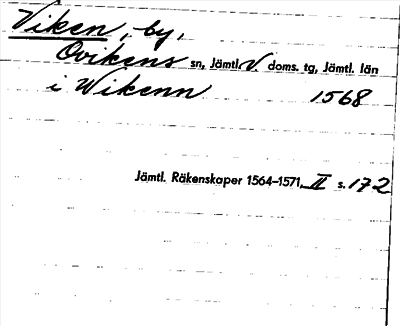 Viken, by,
Ovikens sn, Jämtl. V. doms. tg, Jämtl. län
i Wikenn 1568
Jämtl. Räkenskaper 1564–1571, II s. 172